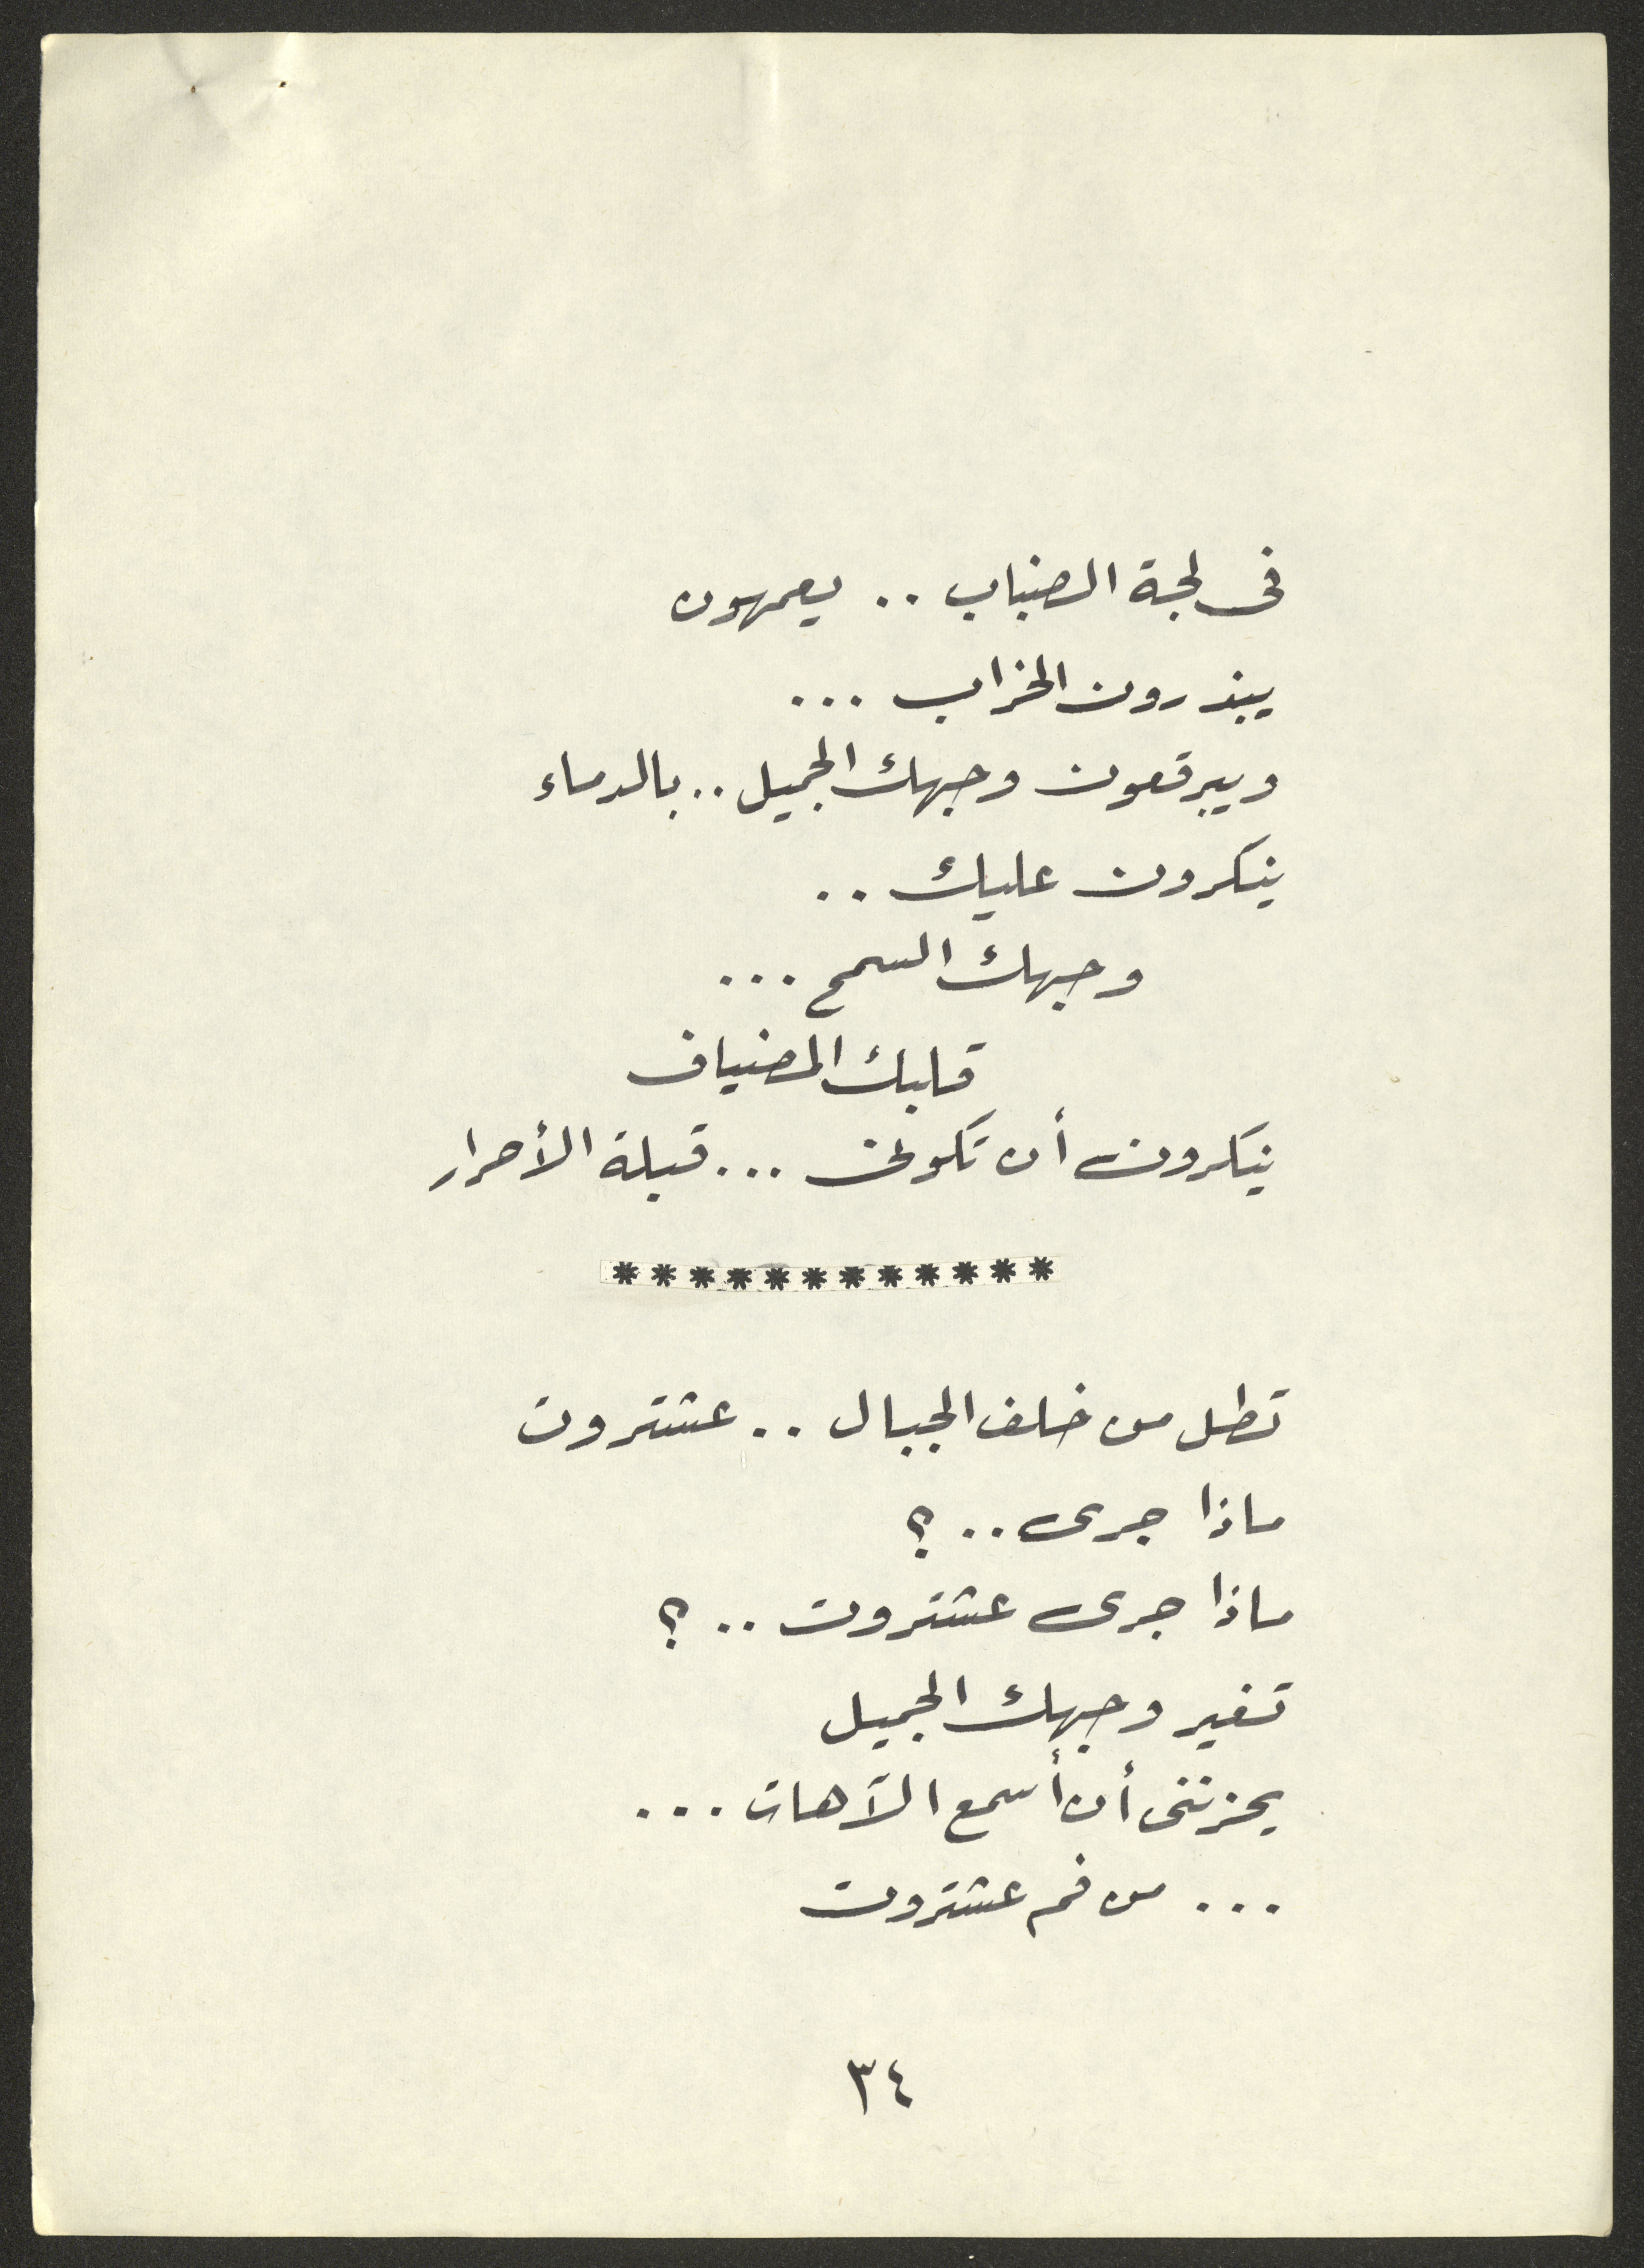 فى لجة الضباب .. يعمهون
يبذرون الخراب ...
ويبرقعون وجهك الجميل .. بالدماء
ينكرون عليك ..
وجهك السمح ...
قلبك المضياف
ينكرون أن تكونى ... قبلة الأحرار
* * * * * * * * * * * *
تطل من خلف الجبال .. عشتروت
ماذا جرى .. ؟
ماذا جرى عشتروت .. ؟
تغير وجهك الجميل
يحزننى أن أسمع الآهات ...
... من فم عشتروت
٣٤